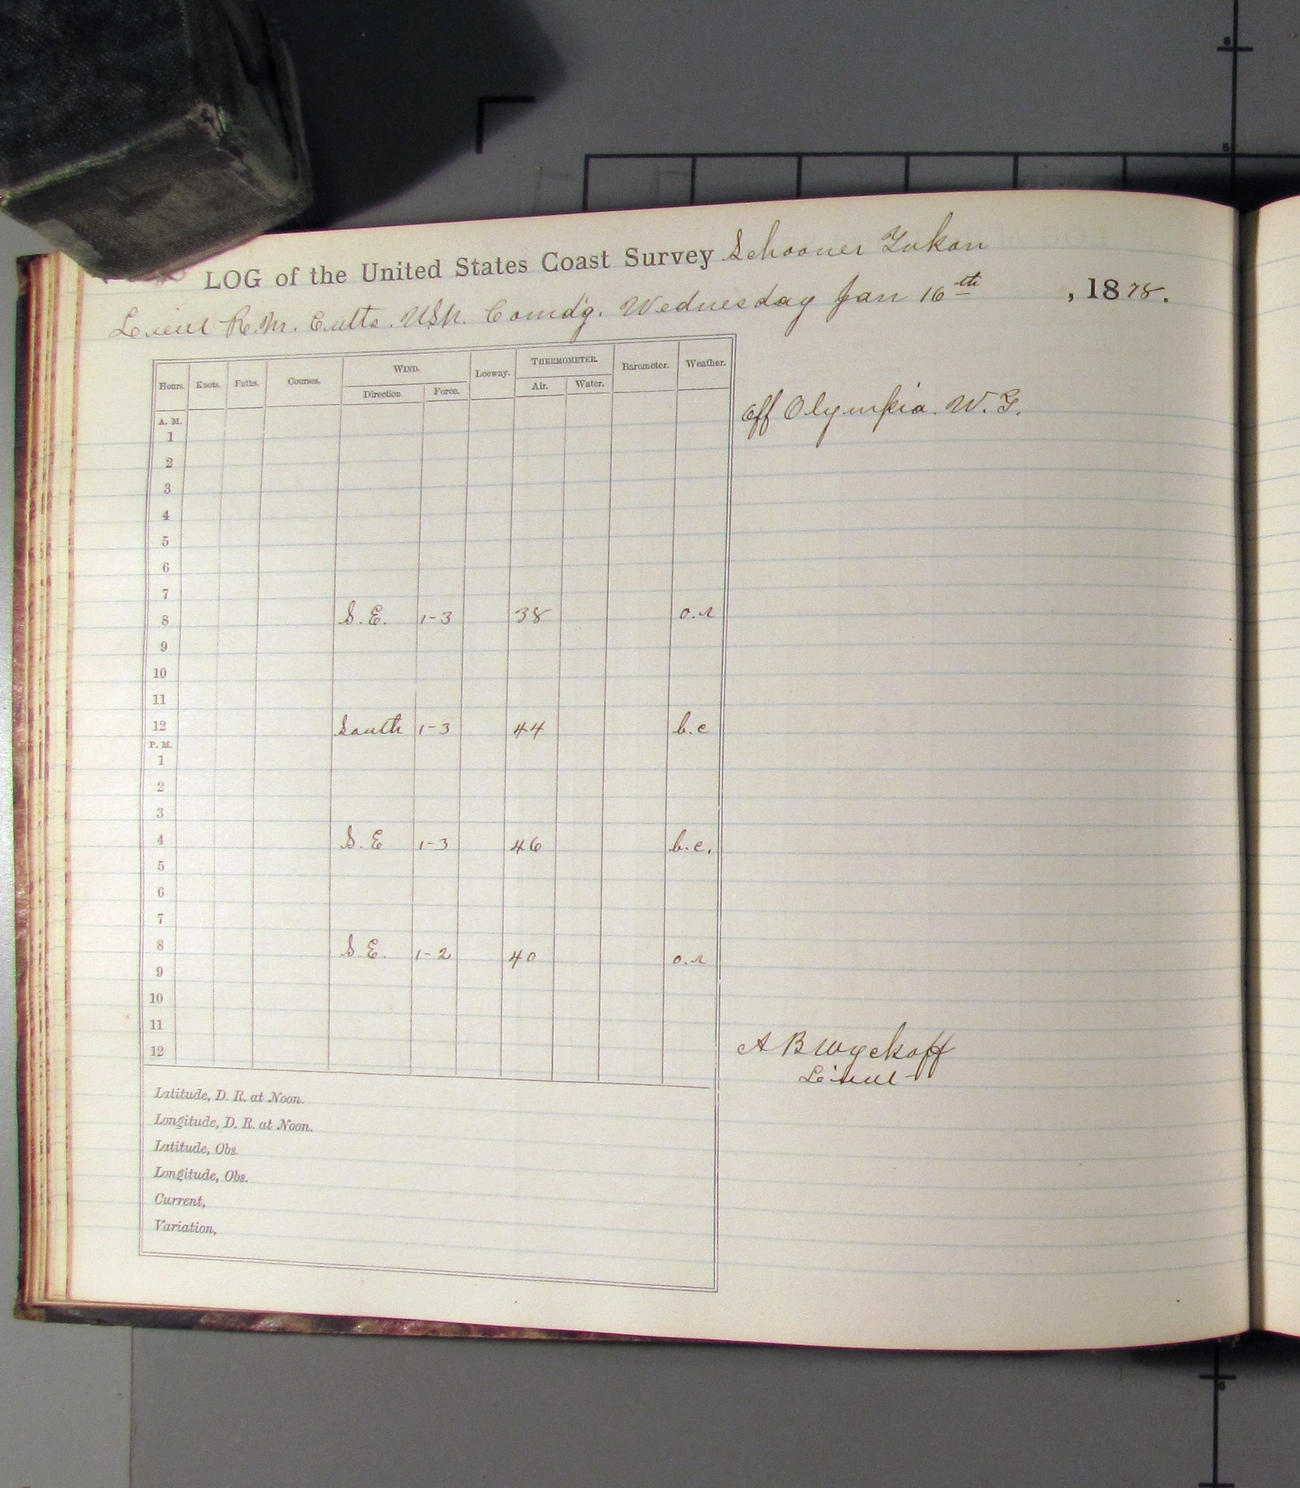 LOG of the United States Coast Survey Schooner Yukon
Lieut R. M. Cutts. USN. Comd'g. Wednesday Jan 16th , 1878.
Hours. Knots. Faths. Courses. WIND. Leeway. THERMOMETER. Barometer. Weather.
Direction. Force. Air. Water.
Off Olympia. W.T.
A. M.
1
2
3
4
5
6
7
8 S.E. 1-3 38 o.r
9
10
11
12 South 1-3 44 b.c
P. M.
1
2
3
4 S.E 1-3 46 b.c.
5
6
7
8 S.E. 1-2 40 o.r
9
10
11
12
A B Wyckoff
Lieut
Latitude, D. R. at Noon.
Longitude, D. R. at Noon.
Latitude, Obs.
Longitude, Obs.
Current,
Variation,